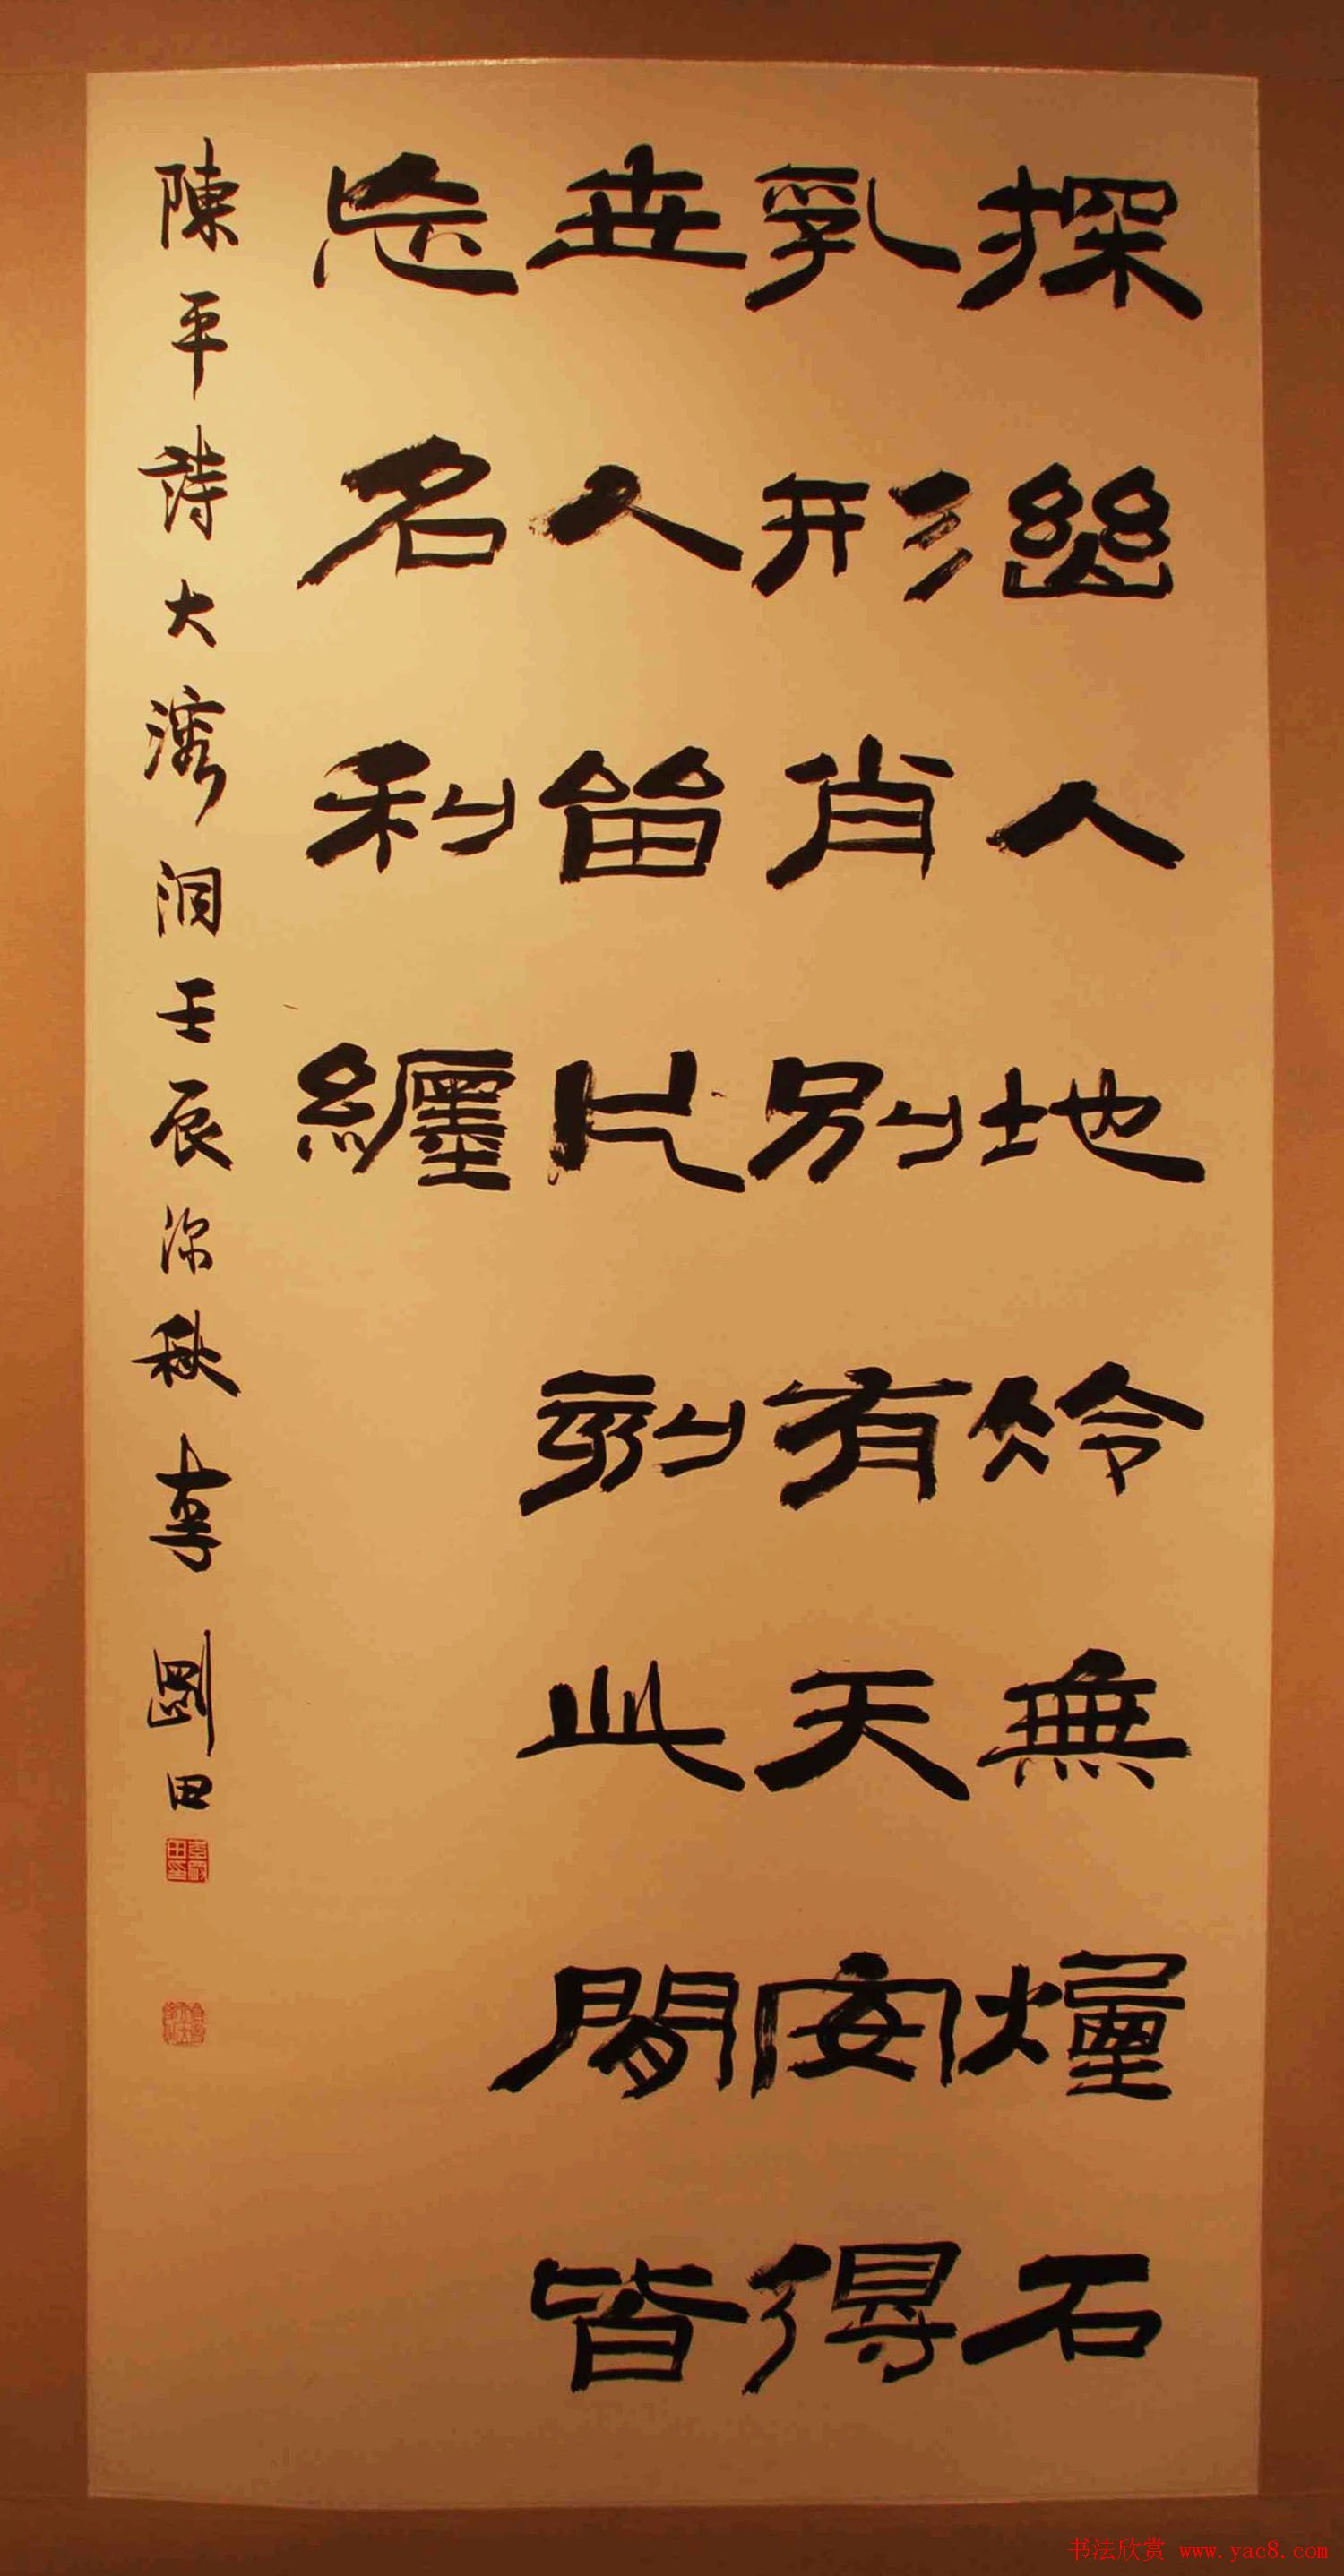 探幽入地冷無煙石
乳形肖別有天安得
世人留片刻此閒皆
忘名利纏
陳平詩大灣洞壬辰深秋李剛田
李剛田印
书法欣赏 www.yac8.com